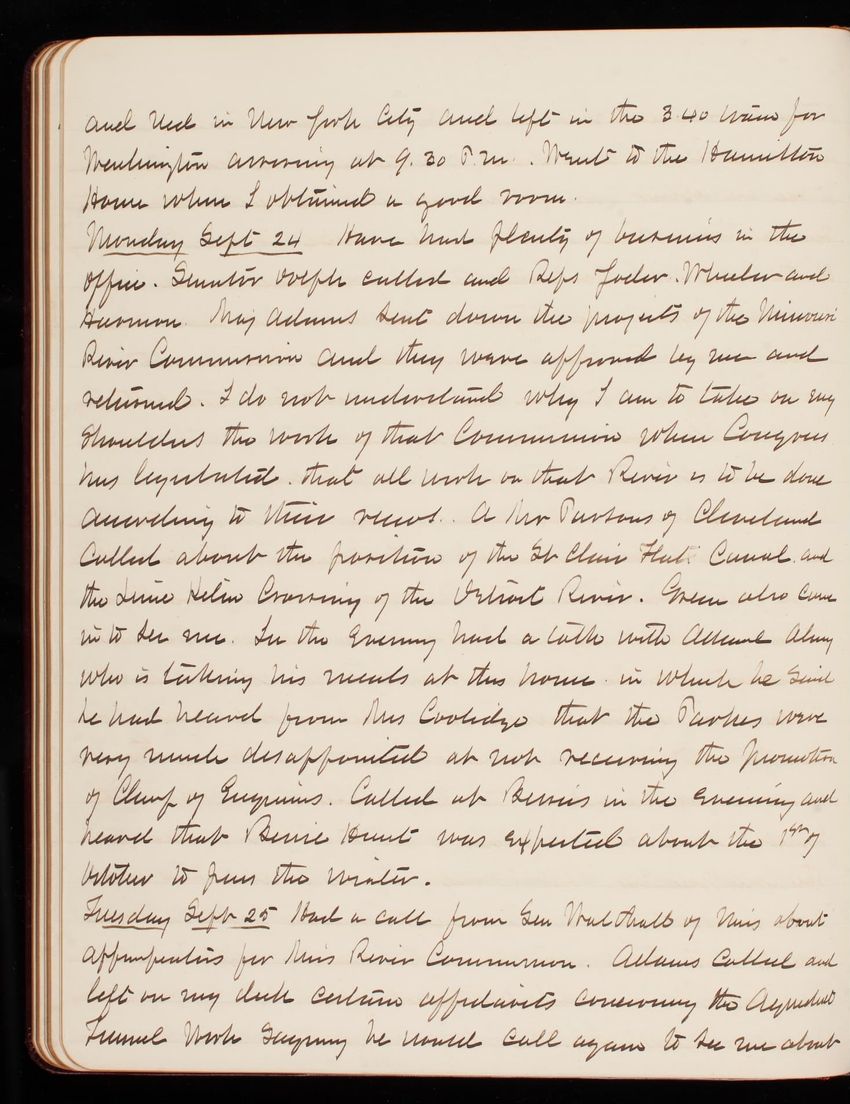 and Ned in New York City and left in the 3.40 train for
Washington arriving at 9.30 P.M. Went to the Hamilton
House where I obtained a good room.
Monday Sept 24 Have had plenty of business in the
office. Senator Dolph called and Reps Yoder. Wheeler and
Harmon. Maj Adams sent down the projects of the Missouri
River Commission and they were approved by me and
returned. I do not understand why I am to take on my
shoulders the work of that Commission when Congress
has legislated that all work on that River is to be done
according to their recom. A Mr Parsons of Cleveland
Called about the position of the St Clair Flats Canal and
the Lime Kiln Crossing of the Detroit River. Green also came
in to see me. In the Evening had a talk with
who is taking his meals at this house in which he said
he had heard from Mrs Coolidge that the Parkes were
very much disappointed at not receiving the promotion
of Chief of Engineers. Called at in the evening and
heard that Hunt was expected about the 1st of
October to pass the winter.
Tuesday Sept 25 Had a call from Sen Walthall of Miss about
appropriations for Miss River Commission. Adams called and
left on my desk certain affidavits concerning the Aqueduct
Tunnel Work saying he would call again to see me about